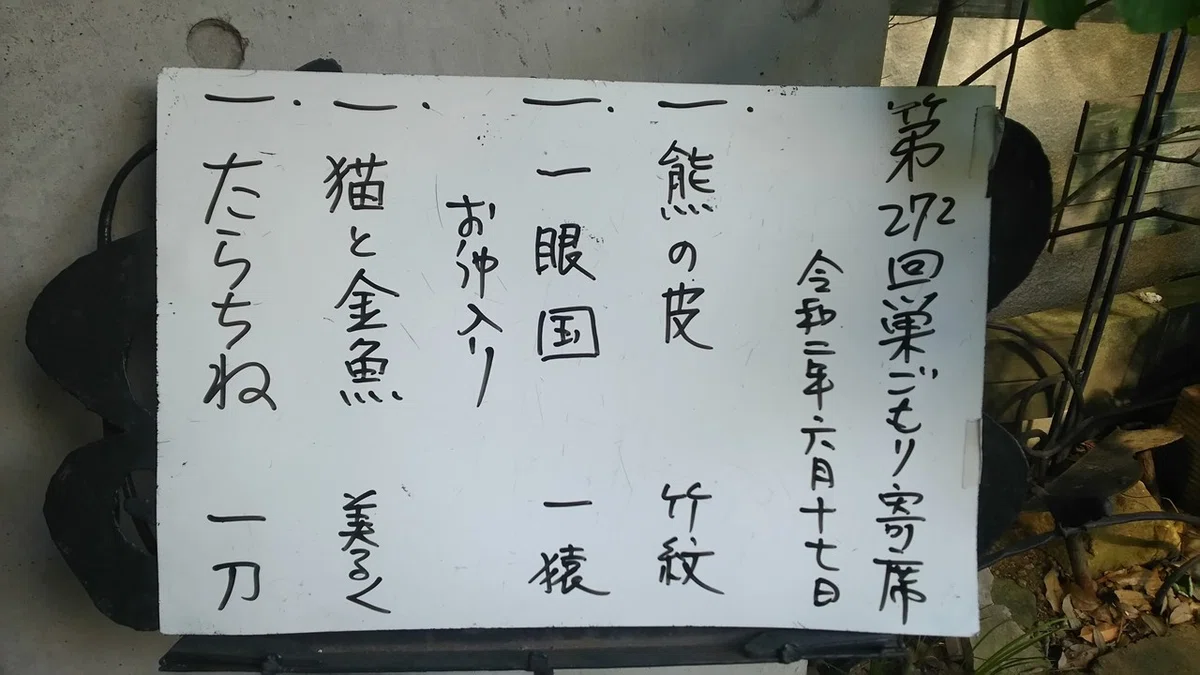 第272回巣ごもり寄席
令和二年六月十七日
一. 熊の皮 竹紋
一. 一眼国 一猿
お仲入り
一. 猫と金魚 美るく
一. たらちね 一刀